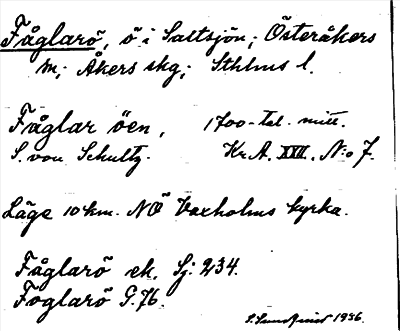 Fåglarö, ö i Saltsjön; Österåkers
sn; Åkers skg; Sthlms l.
Fåglar öen, 1700-tal. mitt.
S. von Schultz. Kr.A. XXII. N:o 7.
Läge 10 km. NÖ Vaxholms kyrka.
Fåglarö ek. Sj: 234.
Foglarö G. 76.
S. Sundquist 1936.